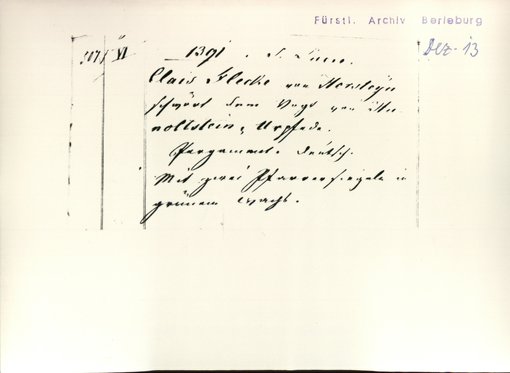 Fürstl. Archiv Berleburg
Dez. 13
VI
1391. S. Luc.
Clais Flecke von Hersteyn
schwört dem Vogt von Hu-
noltstein, Urfehde.
Pergament. deutsch.
Mit zwei Pfarrersiegeln in
grünem Wachs.